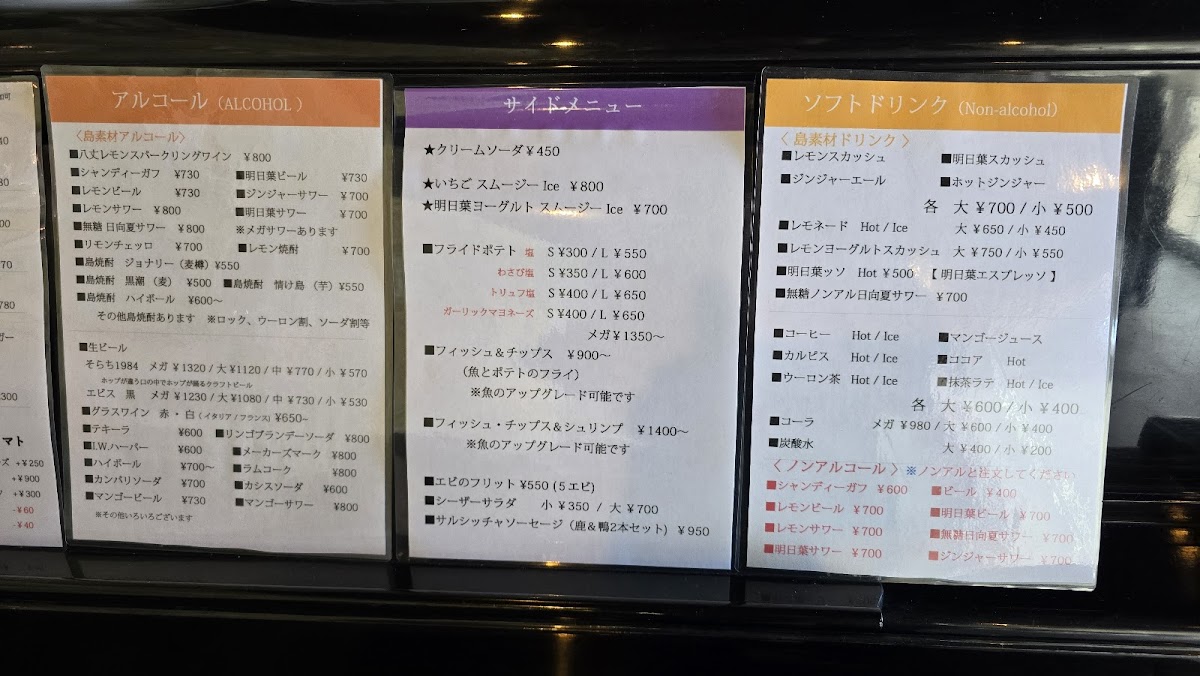 40
80
00
70
780
ガー
300
マト
ズ +¥250
+¥900
+¥300
-¥60
-¥40
アルコール（ALCOHOL ）
〈島素材アルコール〉
■八丈レモンスパークリングワイン ¥800
■シャンディーガフ ¥730 ■明日葉ビール ¥730
■レモンビール ¥730 ■ジンジャーサワー ¥700
■レモンサワー ¥800 ■明日葉サワー ¥700
■無糖 日向夏サワー ¥800 ※メガサワーあります
■リモンチェッロ ¥700 ■レモン焼酎 ¥700
■島焼酎 ジョナリー（麦樽）¥550
■島焼酎 黒潮 （麦） ¥500 ■島焼酎 情け島 （芋）¥550
■島焼酎 ハイボール ¥600～
その他島焼酎あります ※ロック、ウーロン割、ソーダ割等
■生ビール
そらち1984 メガ ¥1320 / 大 ¥1120 / 中 ¥770 / 小 ¥570
ホップが違う口の中でホップが踊るクラフトビール
エビス 黒 メガ ¥1230 / 大 ¥1080 / 中 ¥730 / 小 ¥530
■グラスワイン 赤・白（イタリア / フランス) ¥650~
■テキーラ ¥600 ■リンゴブランデーソーダ ¥800
■I.W.ハーパー ¥600 ■メーカーズマーク ¥800
■ハイボール ¥700～ ■ラムコーク ¥800
■カンパリソーダ ¥700 ■カシスソーダ ¥600
■マンゴービール ¥730 ■マンゴーサワー ¥800
※その他いろいろございます
サイドメニュー
★クリームソーダ ¥450
★いちご スムージー Ice ¥800
★明日葉ヨーグルト スムージー Ice ¥700
■フライドポテト 塩 S ¥300 / L ¥550
わさび塩 S ¥350 / L ¥600
トリュフ塩 S ¥400 / L ¥650
ガーリックマヨネーズ S ¥400 / L ¥650
メガ ¥1350～
■フィッシュ＆チップス ¥900～
（魚とポテトのフライ）
※魚のアップグレード可能です
■フィッシュ・チップス＆シュリンプ ¥1400～
※魚のアップグレード可能です
■エビのフリット ¥550 (５エビ)
■シーザーサラダ 小 ¥350 / 大 ¥700
■サルシッチャソーセージ（鹿＆鴨2本セット) ¥950
ソフトドリンク（Non-alcohol）
〈 島素材ドリンク 〉
■レモンスカッシュ ■明日葉スカッシュ
■ジンジャーエール ■ホットジンジャー
各 大 ¥700 / 小 ¥500
■レモネード Hot / Ice 大 ¥650 / 小 ¥450
■レモンヨーグルトスカッシュ 大 ¥750 / 小 ¥550
■明日葉ッソ Hot ¥500 【 明日葉エスプレッソ 】
■無糖ノンアル日向夏サワー ¥700
■コーヒー Hot / Ice ■マンゴージュース
■カルピス Hot / Ice ■ココア Hot
■ウーロン茶 Hot / Ice ■抹茶ラテ Hot / Ice
各 大 ¥600 / 小 ¥400
■コーラ メガ ¥980 / 大 ¥600 / 小 ¥400
■炭酸水 大 ¥400 / 小 ¥200
〈 ノンアルコール 〉※ノンアルと注文してください
■シャンディーガフ ¥600 ■ビール ¥400
■レモンビール ¥700 ■明日葉ビール ¥700
■レモンサワー ¥700 ■無糖日向夏サワー ¥700
■明日葉サワー ¥700 ■ジンジャーサワー ¥700